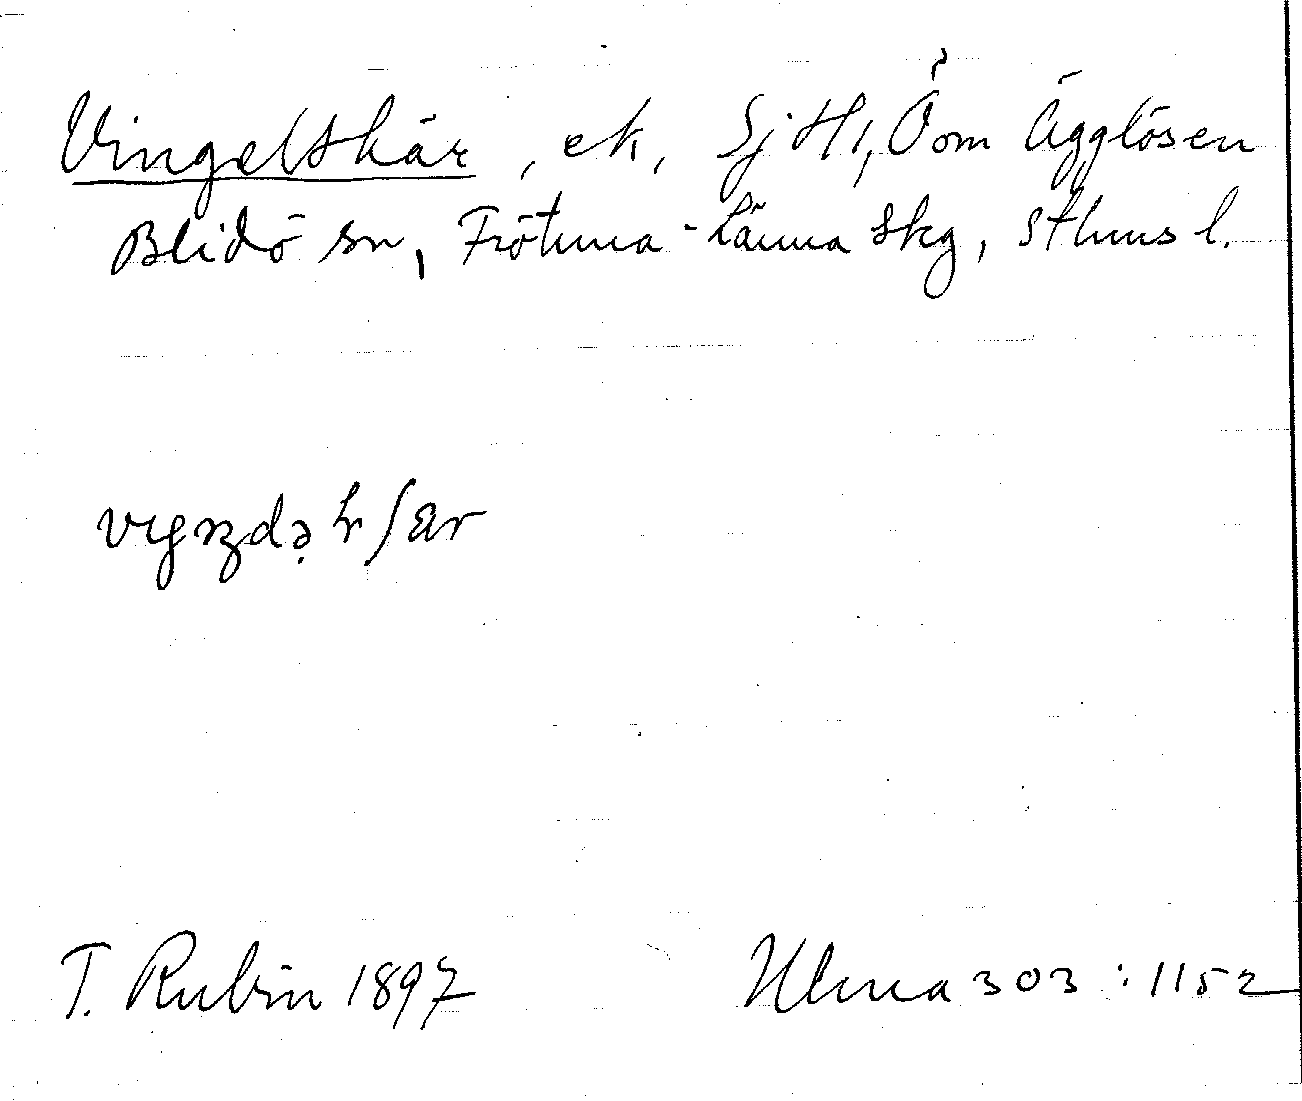 Vingelskär, ek, Sj H1, Ö om Ägglösen
Blidö sn, Frötuna-Länna skg, Sthms l.
T. Rubin 1897 Ulma 303:1152